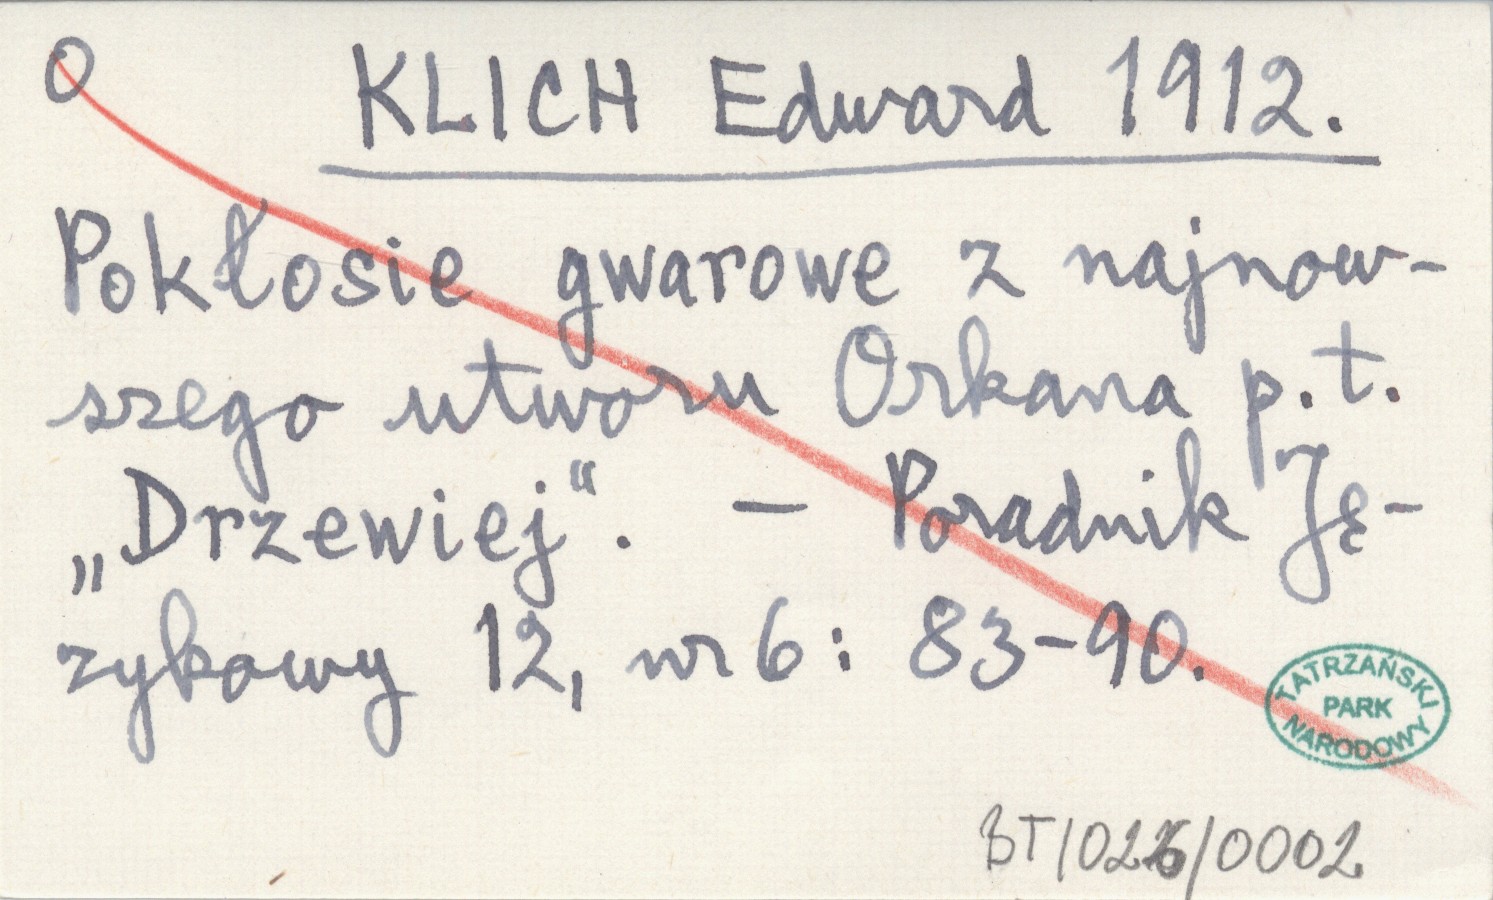 O
KLICH Edward 1912.
Pokłosie gwarowe z najnow-
szego utworu Orkana p.t.
„Drzewiej“. — Poradnik Ję-
zykowy 12, nr 6: 83-90.
TATRZAŃSKI
PARK
NARODOWY
BT/026/0002